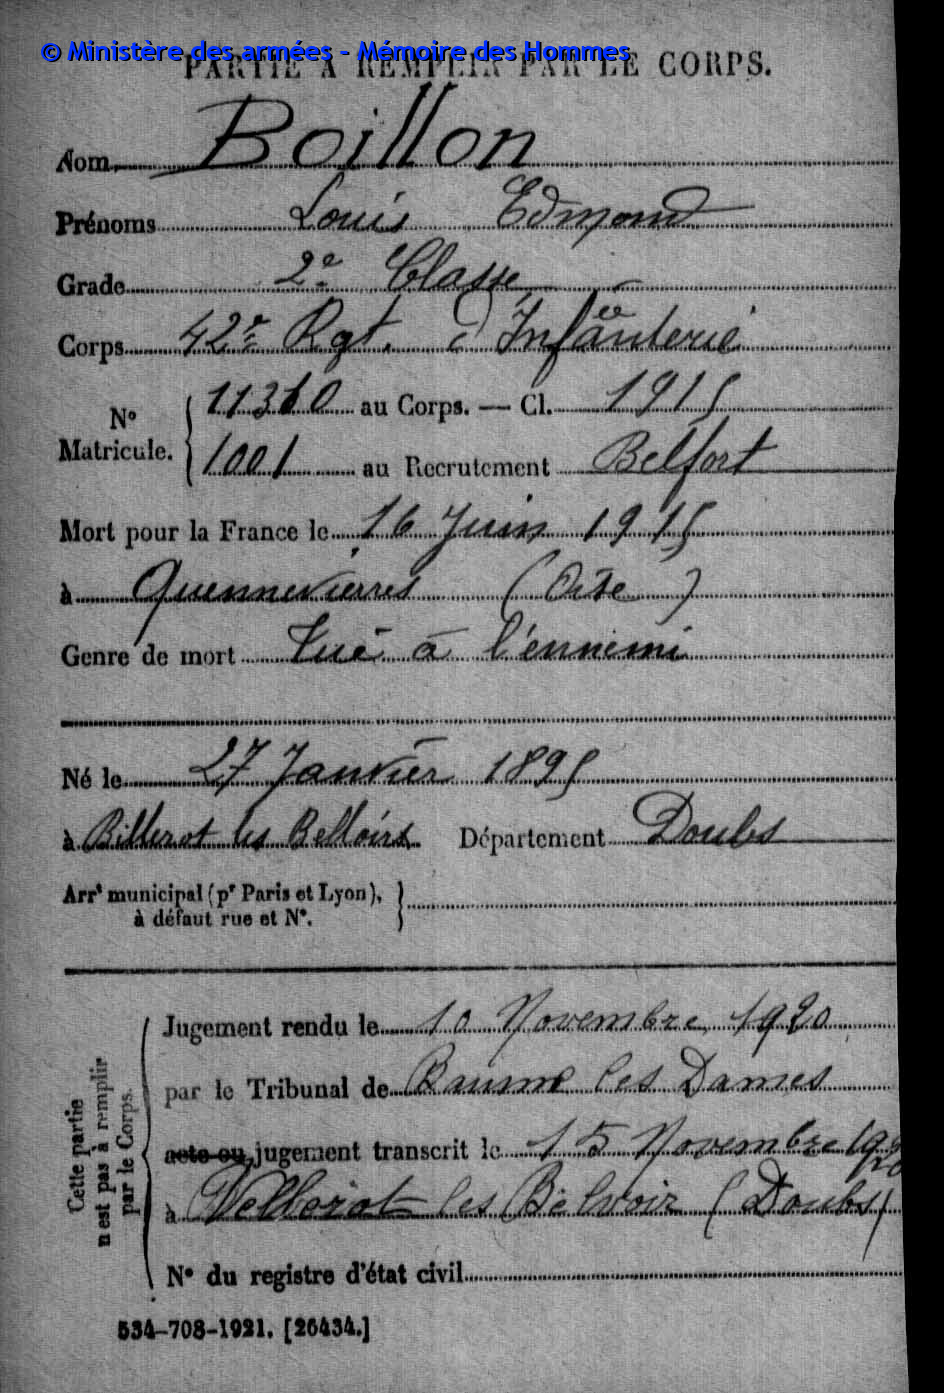 © Ministère des armées - Mémoire des Hommes
PARTIE A REMPLIR PAR LE CORPS.
Nom Boillon
Prénoms Louis Edmond
Grade 2e Classe
Corps 42e Rgt. d'Infanterie
N° Matricule. { 11310 au Corps. — Cl. 1915
1001 au Recrutement Belfort
Mort pour la France le 16 Juin 1915
à Quennevierres (Oise)
Genre de mort Tué à l'ennemi
Né le 27 Janvier 1895
à Billerot les Belloirs Département Doubs
Arrt municipal (pr Paris et Lyon), }
à défaut rue et N°.
Cette partie
n'est pas à remplir
par le Corps.
Jugement rendu le 10 Novembre 1920
par le Tribunal de Baume les Dames
acte ou jugement transcrit le 15 Novembre 1920
à Vellerot les Belvoir (Doubs)
N° du registre d'état civil
534-708-1921. [26434.]